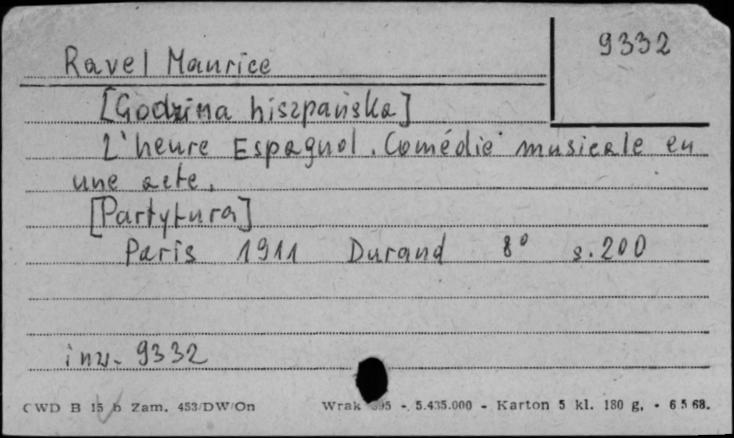 9332
Ravel Maurice
[Godzina hiszpańska]
L'heure Espagnol. Comédie musicale en
une acte.
[Partytura]
Paris 1911 Durand 8° s. 200
inw. 9332
CWD B 15 b Zam. 453/DW/On Wrak 595 - 5.435.000 - Karton 5 kl. 180 g. - 6 5 68.